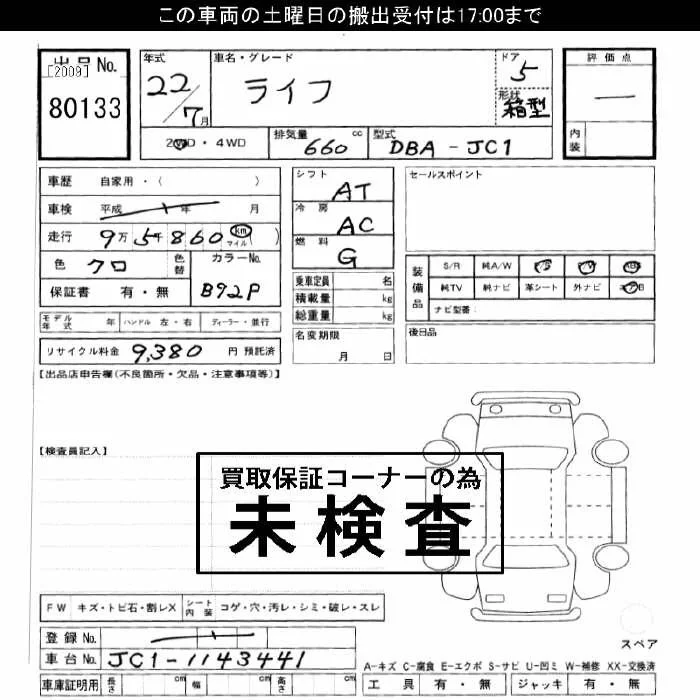 この車両の土曜日の搬出受付は17:00まで
出品No.
[2009]
80133
年式 22/7月
車名・グレード ライフ
ドア 5
形状 箱型
評価点 —
内装
2WD・4WD
排気量 660 cc
型式 DBA-JC1
車歴 自家用・( )
車検 平成 年 月
走行 9万5千860 km マイル ( )
色 クロ 色替
カラーNo. B92P
保証書 有・無
シフト AT
冷房 AC
燃料 G
乗車定員 名
積載量 kg
総重量 kg
名変期限
月 日
セールスポイント
装備品
S/R 純A/W P/S P/W ABS
純TV 純ナビ 革シート 外ナビ エアB
ナビ型番:
後日品
モデル年式 年 ハンドル 左・右 ディーラー・並行
リサイクル料金 9,380 円 預託済
【出品店申告欄(不良箇所・欠品・注意事項等)】
【検査員記入】
買取保証コーナーの為
未検査
FW キズ・トビ石・割レX シート内装 コゲ・穴・汚レ・シミ・破レ・スレ
登録No.
車台No. JC1-1143441
車庫証明用 長さ cm 幅 cm 高さ cm
スペア
A-キズ C-腐食 E-エクボ S-サビ U-凹ミ W-補修 XX-交換済
工具 有・無 ジャッキ 有・無